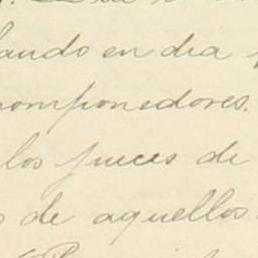 ando en dia
componedores.
los jueces de
de aquellos